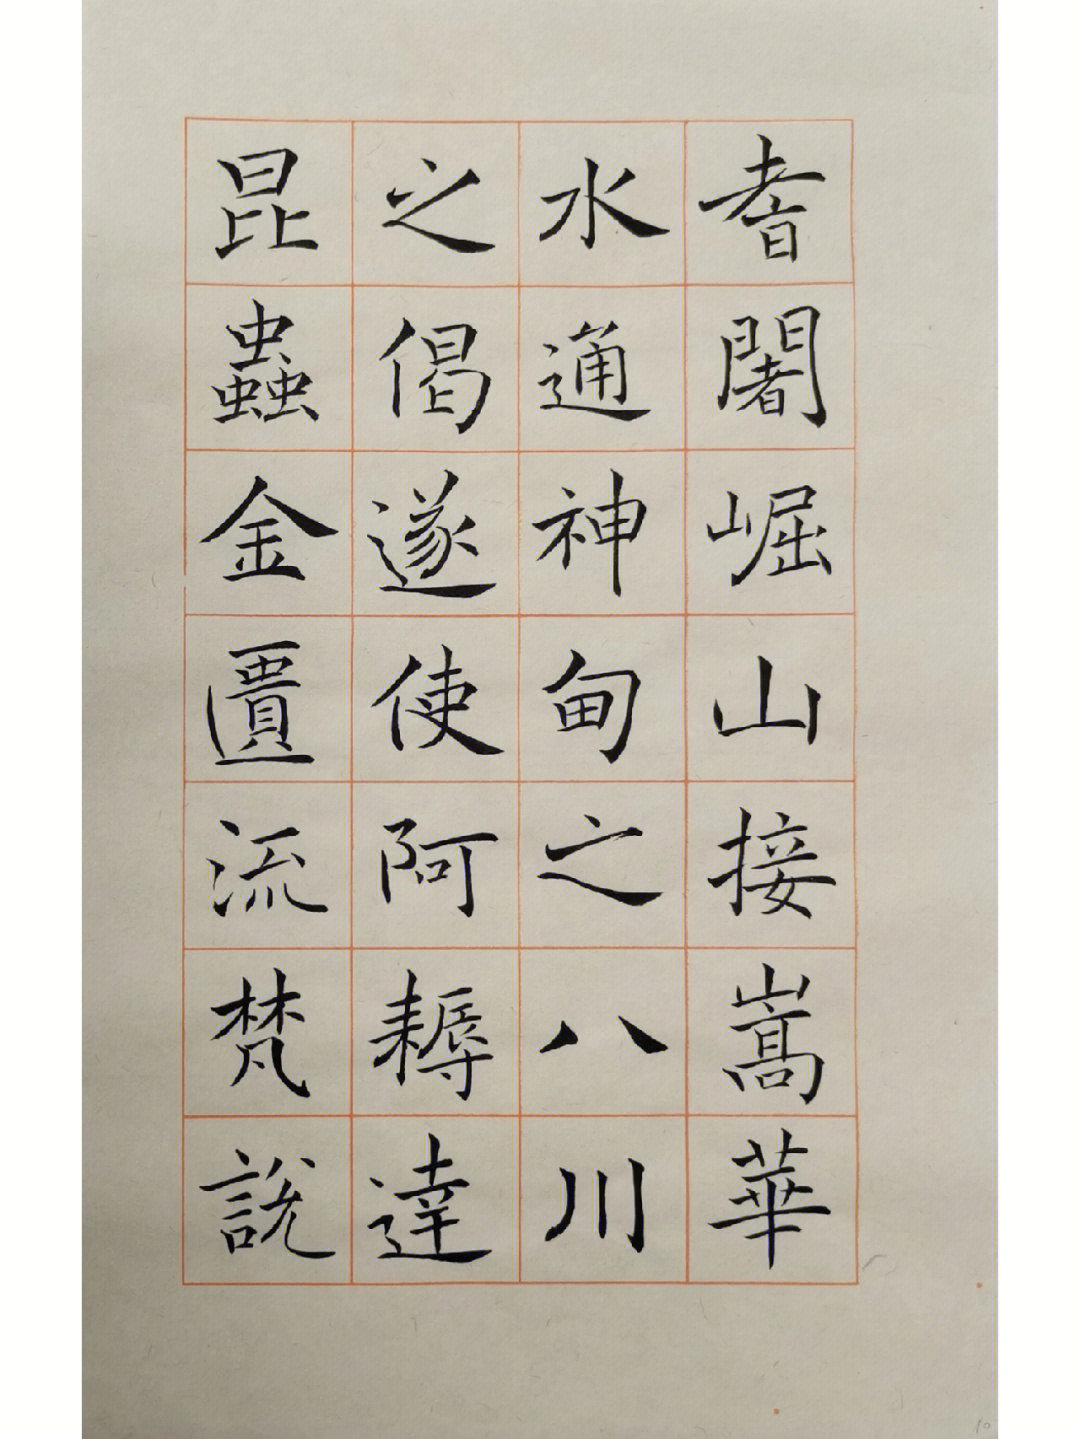 耆闍崛山接嵩華
水通神甸之八川
之偈遂使阿耨達
昆蟲金匱流梵說
10